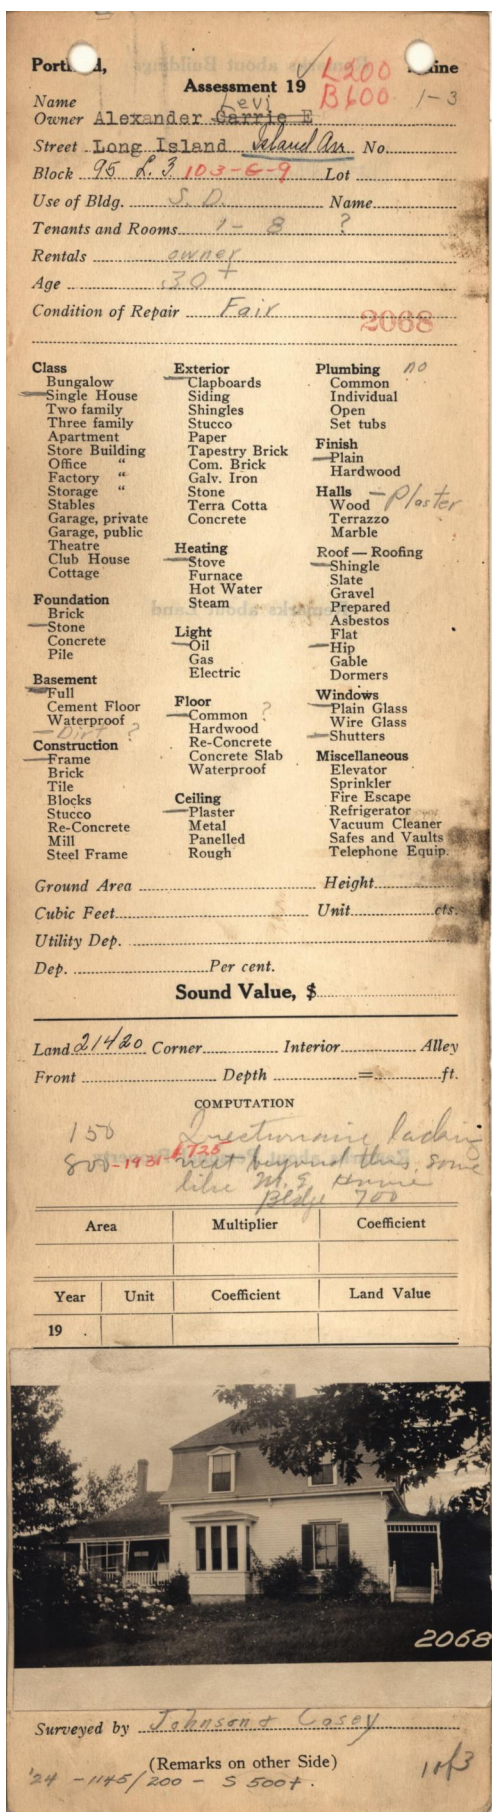 Portland, Maine
L200
Assessment 19
B600 1-3
Name Levi
Owner Alexander Carrie E
Street Long Island Island Av. No.
Block 95 L. 3 103-G-9 Lot
Use of Bldg. S. D. Name
Tenants and Rooms 1- 8 ?
Rentals owner
Age 30+
Condition of Repair Fair
2068
Class
Bungalow
Single House
Two family
Three family
Apartment
Store Building
Office "
Factory "
Storage "
Stables
Garage, private
Garage, public
Theatre
Club House
Cottage
Foundation
Brick
Stone
Concrete
Pile
Basement
Full
Cement Floor
Waterproof
Dirt ?
Construction
Frame
Brick
Tile
Blocks
Stucco
Re-Concrete
Mill
Steel Frame
Exterior
Clapboards
Siding
Shingles
Stucco
Paper
Tapestry Brick
Com. Brick
Galv. Iron
Stone
Terra Cotta
Concrete
Heating
Stove
Furnace
Hot Water
Steam
Light
Oil
Gas
Electric
Floor
Common ?
Hardwood
Re-Concrete
Concrete Slab
Waterproof
Ceiling
Plaster
Metal
Panelled
Rough
Plumbing no
Common
Individual
Open
Set tubs
Finish
Plain
Hardwood
Halls - Plaster
Wood
Terrazzo
Marble
Roof — Roofing
Shingle
Slate
Gravel
Prepared
Asbestos
Flat
Hip
Gable
Dormers
Windows
Plain Glass
Wire Glass
Shutters
Miscellaneous
Elevator
Sprinkler
Fire Escape
Refrigerator
Vacuum Cleaner
Safes and Vaults
Telephone Equip.
Ground Area Height
Cubic Feet Unit cts.
Utility Dep.
Dep. Per cent.
Sound Value, $
Land 21420 Corner Interior Alley
Front Depth = ft.
COMPUTATION
150 lacking
800 -1931 $725 next beyond this, some
like M. E. Home
Bldg 700
Area Multiplier Coefficient
Year Unit Coefficient Land Value
19
2068
Surveyed by Johnson & Casey
(Remarks on other Side)
'24 - 1145/200 - S 500+. 1 of 3